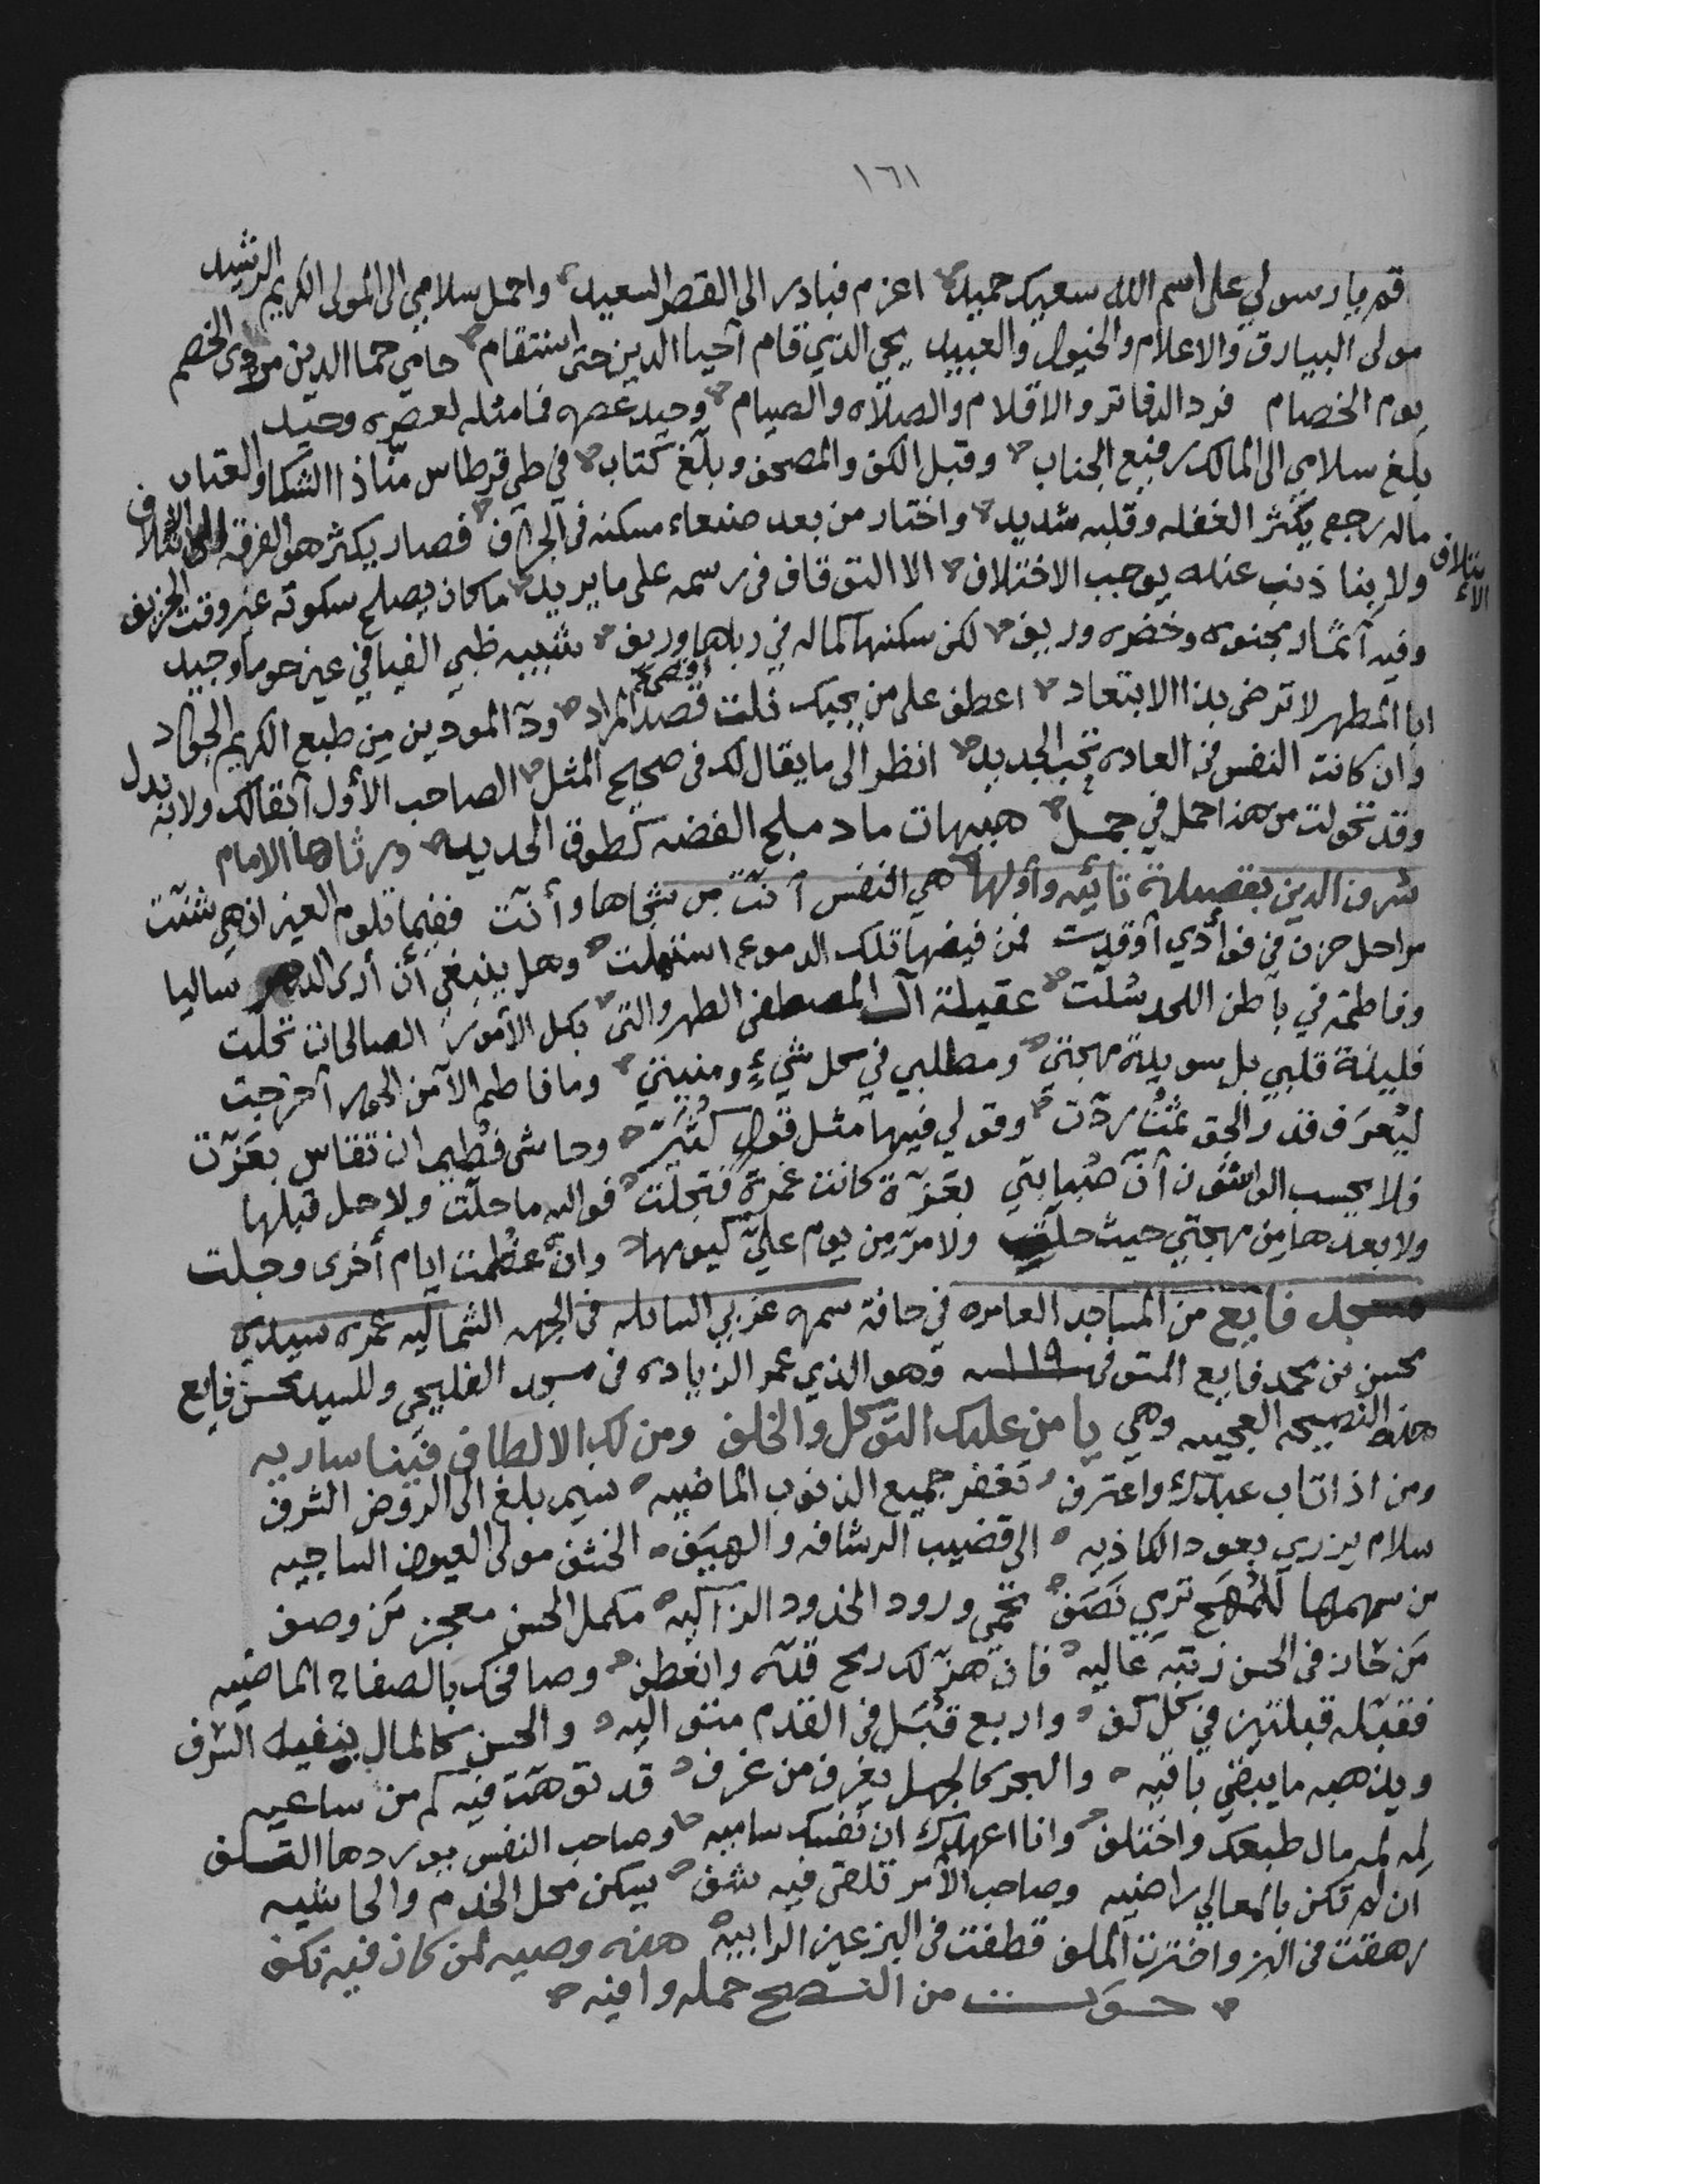 ١٦١
قم يا رسولي على اسم الله سعيك حميد اعزم فبادر الى القصر السعيد واحمل سلامي الى المولى الكريم الرشيد
مولى البيارق والاعلام والخيول والعبيد يحي الذي قام أحيا الدين حتى استقام حامي حما الدين مردي الخصم
يوم الخصام فرد الدفاتر والاقلام والصلاه والصيام وحيد عصره فما مثله لعصره وحيد
بلغ سلامي الى المالك رفيع الجناب وقبل الكف والمصحف وبلغ كتاب في طي قرطاس مننا ذا الشكا والعتاب
ماله رجع يكثر الغفله وقلبه شديد واختار من بعد صنعاء مسكنه في الجراف فصار يكثر هوى الفرقه الائتلاف
ولا بنا ذنب عنده يوجب الاختلاف الا التوقاف في رسمه على ما يريد ما كان يصلح سكوته غير وقت الخريف
وفيه أثمار مجنوه وخضره وريف لكن سكنها كماله في رباها وريف شبيه ظبي الفيافي عين حوما وجيد
ابا المطهر لا ترضى بذا الابتعاد اعطف على من يحبك نلت اقصى قصد المراد ود المودين من طبع الكريم الجواد
وان كانت النفس في العاده تحب الجديد انظر الى ما يقال لك في صحيح المثل الصاحب الأول أبقالك ولا به بدل
وقد تحولت من هذا حمل في جمل هيهات ماد ملح الفضه كطوق الحديد ورثاها الامام
شرف الدين بقصيدة تائيه وأولها هي النفس أنّت من شجاها وأنّت ففيما تلوم العين ان هي شنّت
مراحل حزن في فوأدي أوقدت فمن فيضها تلك الدموع استهلت وهل ينبغي أن أرى الدهر ساليا
وفاطمة في باطن اللحد شلت عقيلة آل المصطفى الطهر والتي بكل الأمور الصالحات تحلت
فليذة قلبي بل سويدة مهجتي ومطلبي في كل شيءٍ ومنيتي وما فاطم الا من الحور أخرجت
ليعرف قدر الحق ثمّت ردّت وقولي فيها مثل قول كثيّر وحاشى فطيم ان تقاس بعزّت
فلا يحسب الواشون أنّ صبابتي بعزّة كانت غمرة فتجلت فوالله ما حلّت ولا حل قبلها
ولا بعدها من مهجتي حيث حلت ولا مرّ من يوم عليّ كيومها وان عظمت ايام أخرى وجلت
مسجد فايع من المساجد العامره في حافة سمره غربي السائله في الجهه الشماليه عمره سيدي
محسن بن محمد فايع المتوفى ١١٩ سنه وهو الذي عمر الزياده في مسجد الفليحي وللسيد محسن فايع
هذه النصيحه العجيبه وهي يا من عليك التوكل والخلف ومن لك الالطاف فينا ساريه
ومن اذا تاب عبدك واعترف تغفر جميع الذنوب الماضيه نسيم بلغ الى الروض الشرف
سلام يزري بعود الكاذيه الى قضيب الرشافه والهيف الخشف مولى العيون الساجيه
من سهمها للمهج ترمي نصف تحمي ورود الخدود الزاكيه مكمل الحسن معجز من وصف
من حاز في الحسن رتبه عاليه فان هزّ لك رمح قده وانعطف وصافحك بالصفاح الماضيه
فقبّله قبلتين في كل كف واربع قبل في القدم متواليه والحسن كالمال ينفيه الشرف
ويذهبه ما يبقي باقيه والبحر كالجهل يغرف من غرف قد توهت فيه كم من ساعيه
لِمه لمه مال طبعك واختلف وانا اعهدك ان نفسك ساميه وصاحب النفس يوردها التلف
ان لم تكن بالمعالي راضيه وصاحب الأمر تلقى فيه شف يسكن محل الخدم والحاشيه
رهقت في البز واخترت الملف قطفت في البز عين الرابيه هذه وصيه لمن كان فيه نكف
حوت من النصح جمله وافيه